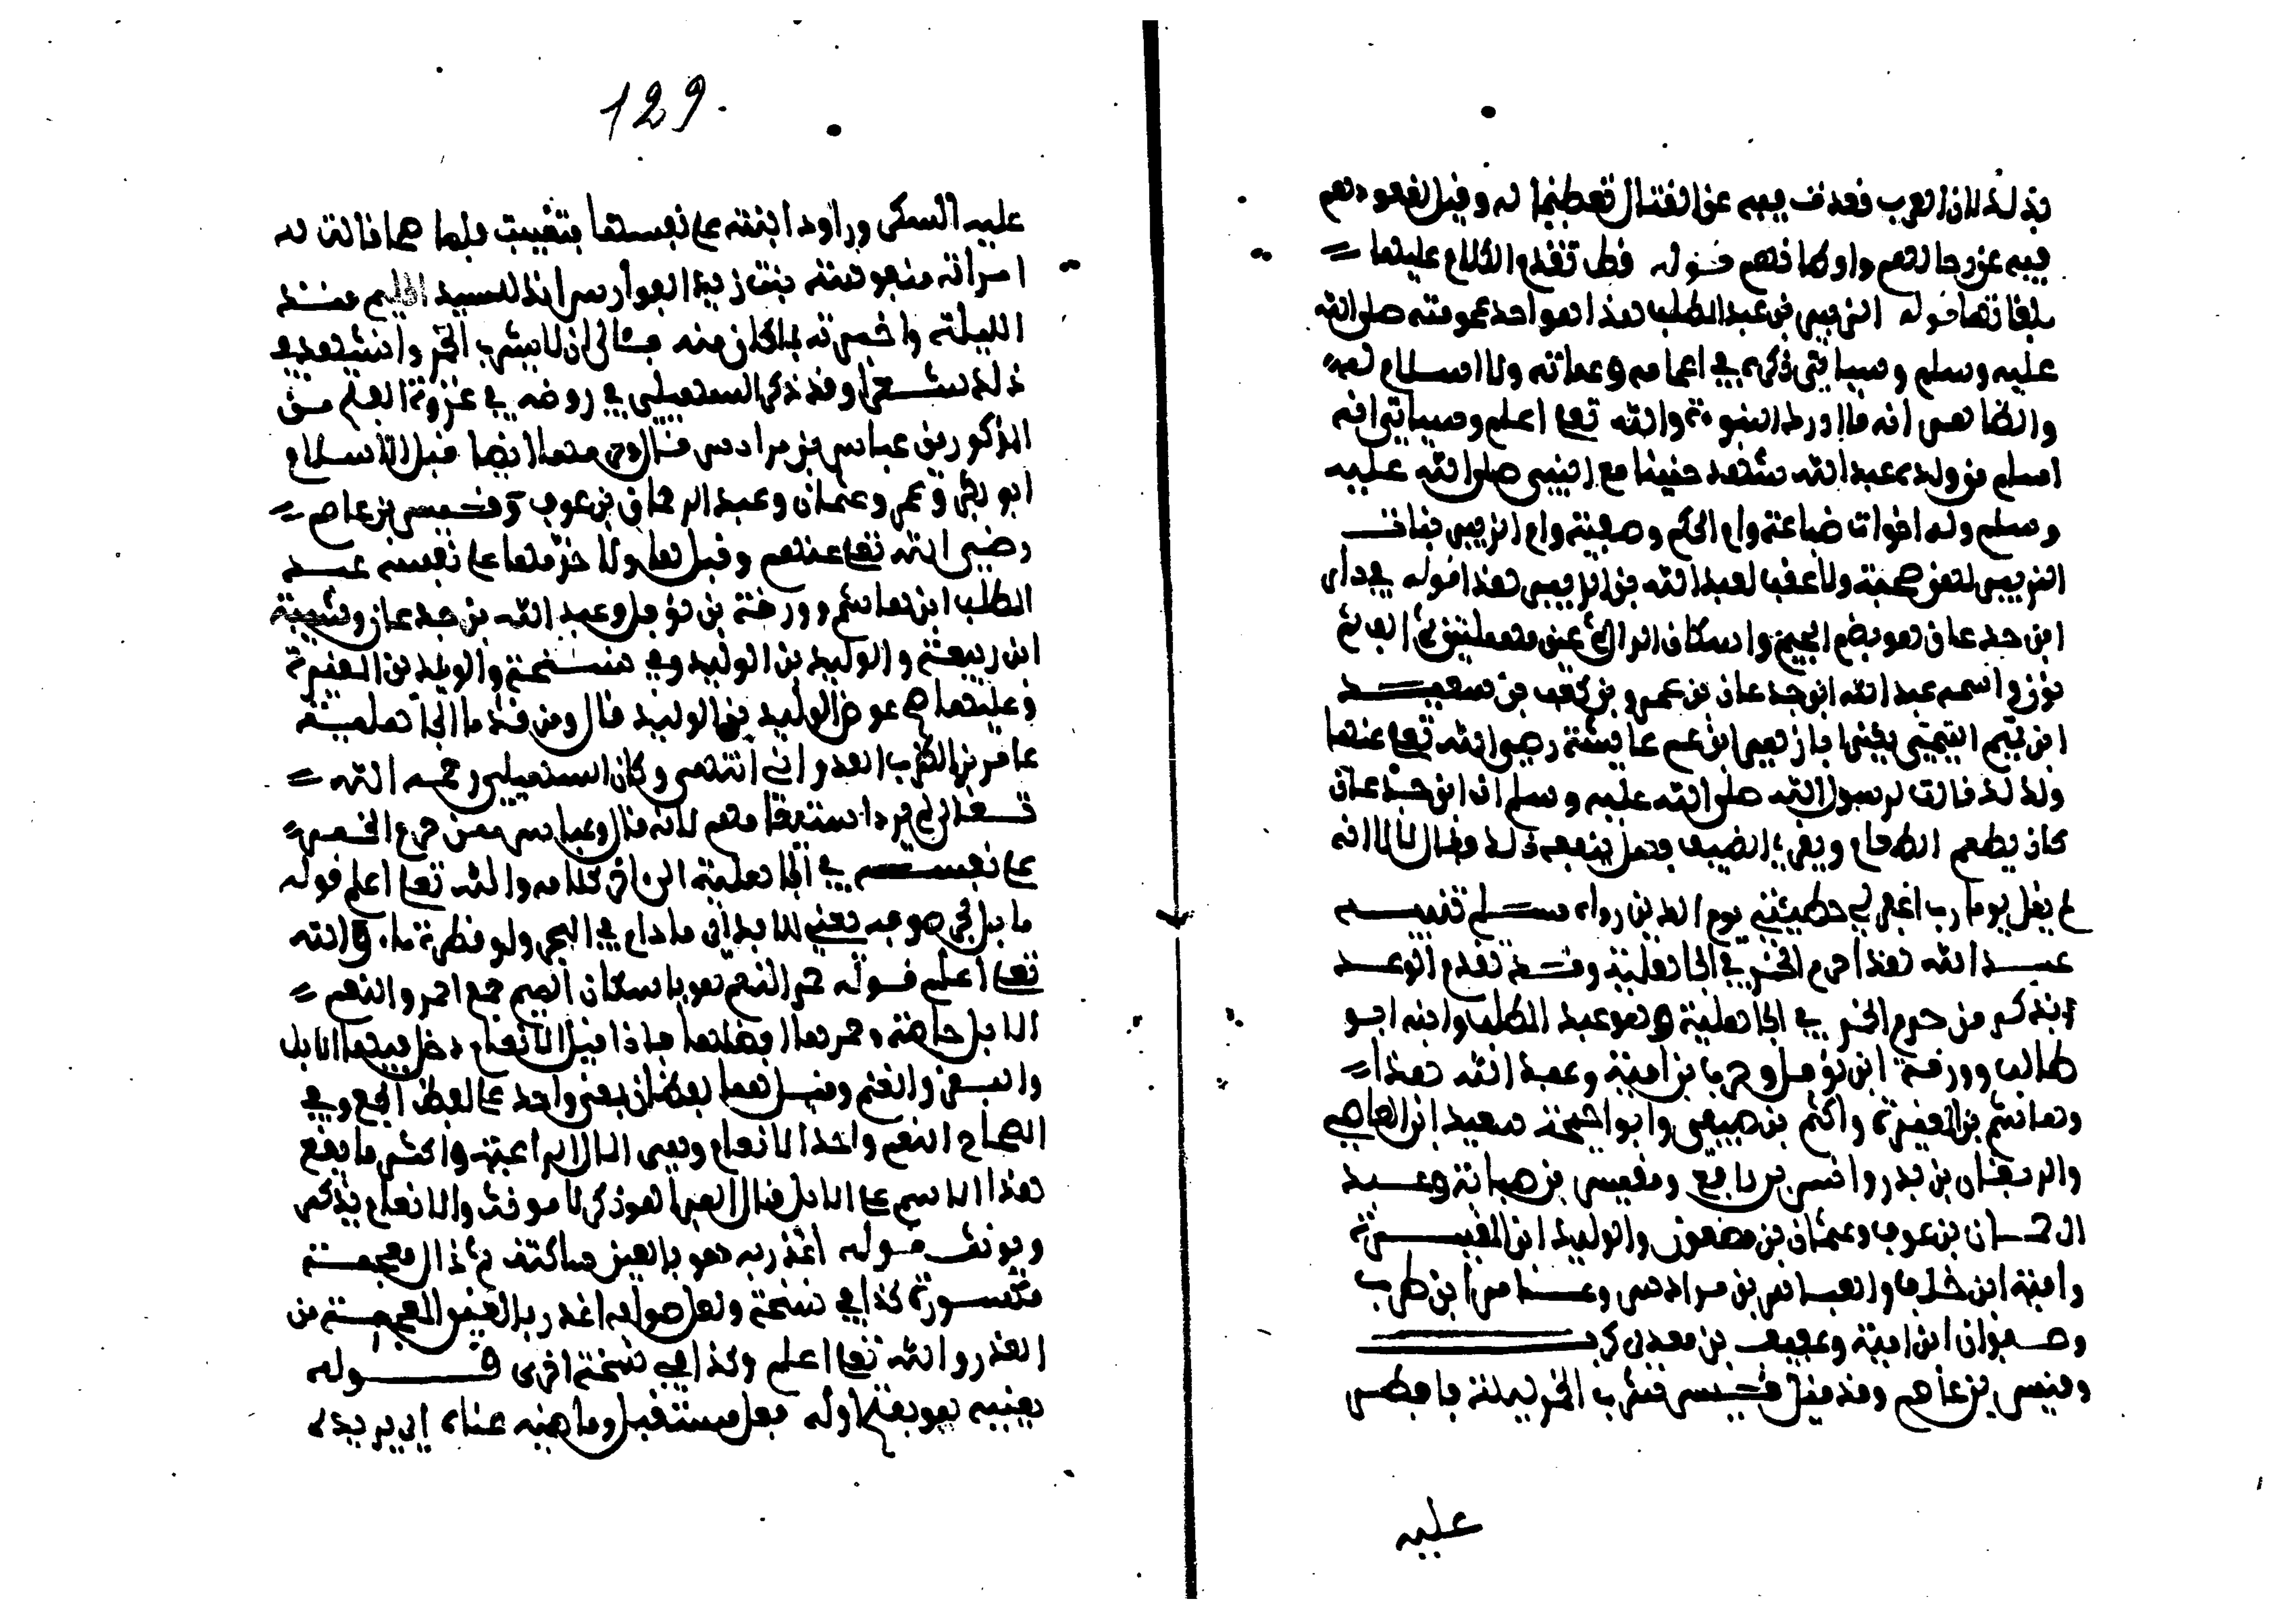 بذلك لان العرب قعدت فيه عن القتال تعظيما له وقيل لقعودهم
فيه عن رحالهم واوكافهم قوله قط تقدم الكلام عليها
بلغاتها قوله الزبير بن عبد المطلب هذا هو احد عمومته صلى الله
عليه وسلم وسياتي ذكره في اعمامه وعماته ولا اسلام له
والظاهر انه ما ادرك النبوءة والله تعا اعلم وسياتي انه
اسلم من ولده عبد الله شهد حنينا مع النبي صلى الله عليه
وسلم وله اخوات ضباعة وام الحكم وصفية وام الزبير بنات
الزبير لهن صحبة ولا عقب لعبد الله بن الزبير هذا قوله في دار
ابن جدعان هو بضم الجيم واسكان الدال ثم عين مهملتين ثم الف ثم
نون واسمه عبد الله ابن جدعان بن عمرو بن كعب بن سعيد
ابن تيم التيمي يكنى ابا زهير ابن عم عايشة رضي الله تعا عنها
ولذلك قالت لرسول الله صلى الله عليه وسلم ان ابن جدعان
كان يطعم الطعام ويقري الضيف فهل ينفعه ذلك فقال لا لانه
لم يقل يوما رب اغفر لي خطيئتي يوم الدين رواه مسلم تنبيه
عبد الله هذا حرم الخمر في الجاهلية وقد تقدم الوعد
بذكر من حرم الخمر في الجاهلية وهو عبد المطلب وابنه ابو
طالب وورقة ابن نوفل وحرب بن امية وعبد الله هذا
وهاشم بن المغيرة واكثم بن صيفي وابو احيحة سعيد ابن العاصي
والربقان بن بدر وانس بن رافع ومقيس بن صبابة وعبد
الرحمان بن عوف وعثمان بن مضعون والوليد ابن المغيرة
وامية ابن خلف والعباس بن مرادس وعامر ابن ظرب
وصفوان ابن امية وعفيف بن معدي كرب
وقيس بن عاصم وقد قيل قيس شرب الخمر ليلة فافطر
عليه
129
عليه السكر وراود ابنته على نفسها بتغيبت فلما صحا قالت له
امراته منفوسة بنت زيد الفوارس انك لسيد منذ
الليلة واخبرته بما كان منه فئالى ان لا يشرب الخمر وانشد في
ذلك شعرا وقد ذكر السهيلي في روضه في غزوة الفتح من
المذكورين عباس بن مرادس قال وحرمها ايضا قبل الاسلام
ابو بكر وعمر وعثمان وعبد الرحمان بن عوف وقيس بن عاصم
رضي الله تعا عنهم وقبل هاولا حرمها على نفسه عبد
المطلب ابن هاشم وورقة بن نوفل وعبد الله بن جدعان وشيبة
ابن ربيعة والوليد بن الوليد وفي نسخة والوليد بن المغيرة
وعليها صح عوض الوليد بن الوليد قال ومن قدما الجاهلية
عامر بن الظرب العدواني انتهى وكان السهيلي رحمه الله
تعالى لم يرد استيعابهم لانه قال وعباس ممن حرم الخمر
على نفسه في الجاهلية الى اخر كلامه والله تعا اعلم قوله
ما بل بحر صوفه يعني الابد اي ما دام في البحر ولو قطرة ماء والله
تعا اعلم قوله حمر النعم هو باسكان الميم جمع احمر والنعم
الابل خاصة وحمرها افضلها فاذا قيل الانعام دخل فيها الابل
والبقر والغنم وقيل هما لفظان بمعنى واحد على لفظ الجمع وفي
الصحاح النعم واحد الانعام وهي المال الراعية واكثر ما يقع
هذا الاسم على الابل قال الفرا هو ذكر لا مونث والانعام يذكر
ويونث قوله اعذر به هو بالعين ساكنة ثم ذال معجمة
مكسورة كذا في نسخة ولعل صوابه اغدر بالغين المعجمة من
الغدر والله تعا اعلم وكذا هي نسخة اخرى قوله
يعنيه هو بفتح اوله فعل مستقبل وماضيه عناه اي يريده